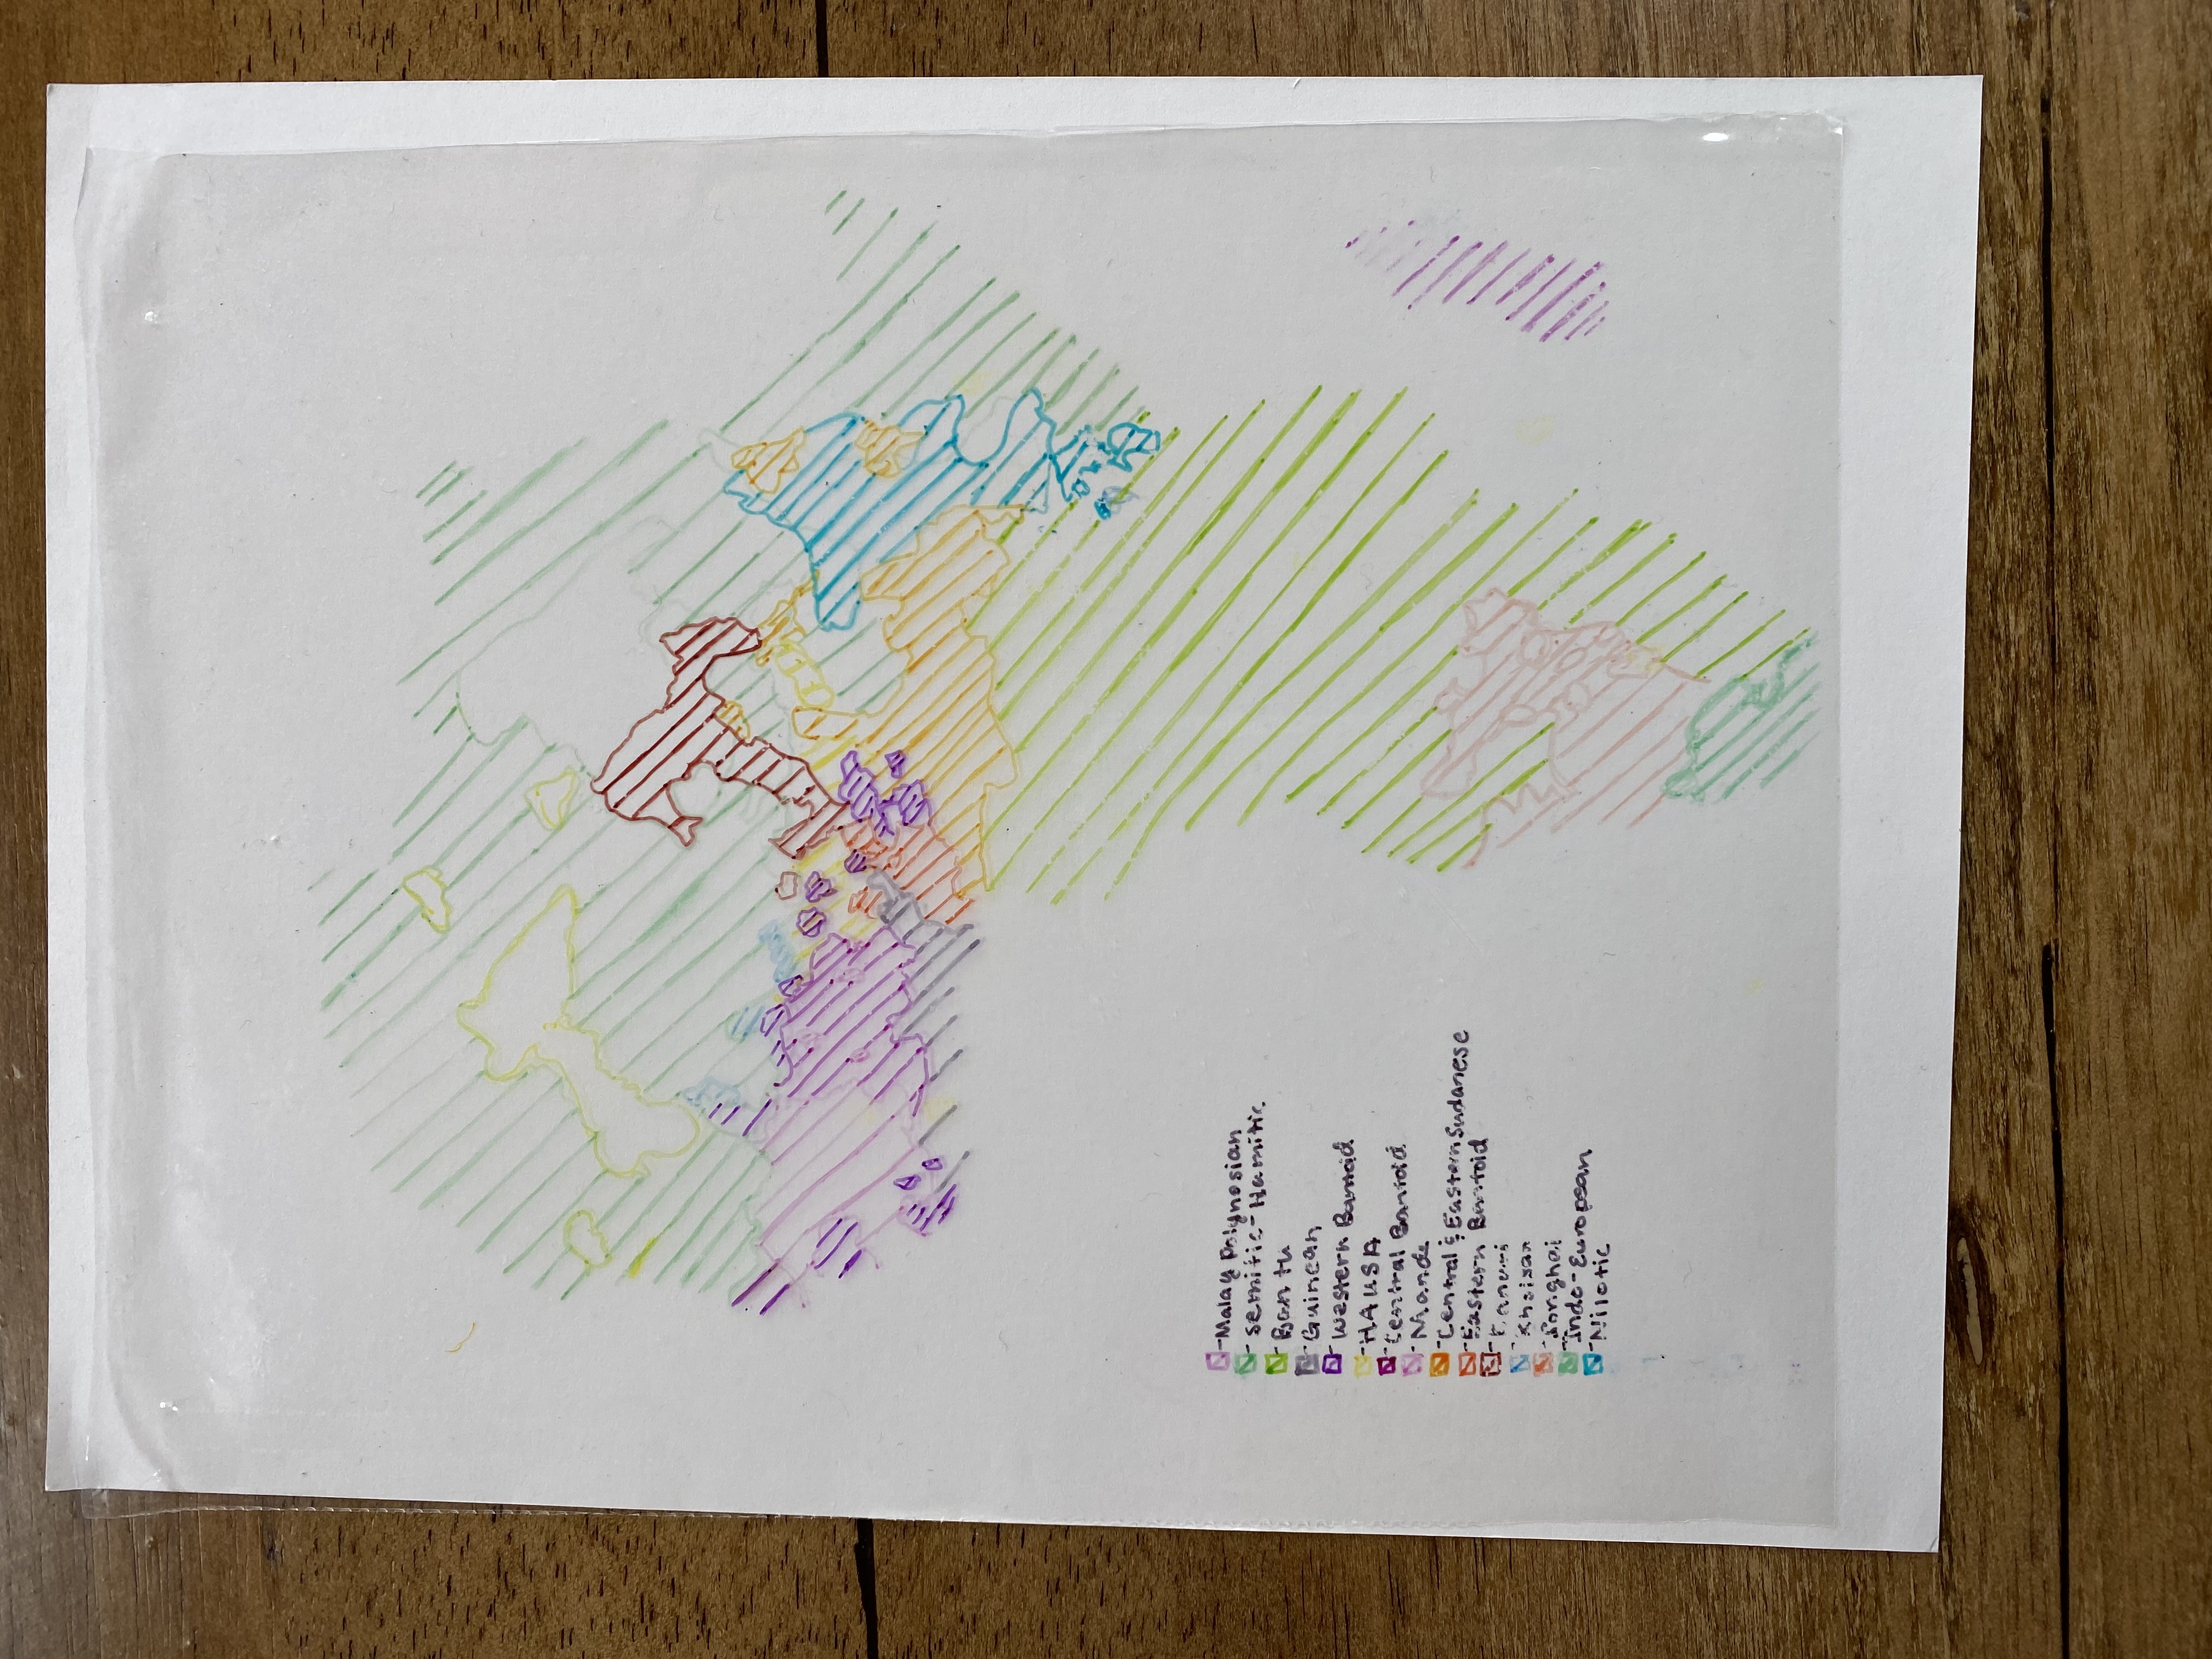 Malay Polynosian
Semitic-Hamitic
Bantu
Guinean
Western Bantoid
HAUSA
Central Bantoid
Mande
Central & Eastern Sudanese
Eastern Bantoid
Kanuri
Khoisan
Songhai
Indo-European
Nilotic